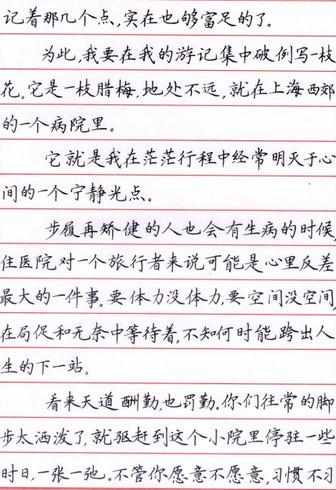 记着那几个点,实在也够富足的了。
为此,我要在我的游记集中破例写一枝
花。它是一枝腊梅,地处不远,就在上海西郊
的一个病院里。
它就是我在茫茫行程中经常明灭于心
间的一个宁静光点。
步履再矫健的人也会有生病的时候
住医院对一个旅行者来说可能是心里反差
最大的一件事。要体力没体力,要空间没空间
在局促和无奈中等待着,不知何时能跨出人
生的下一站。
看来天道酬勤,也罚勤。你们往常的脚
步太洒泼了,就驱赶到这个小院里停驻一些
时日,一张一弛。不管你愿意不愿意,习惯不习